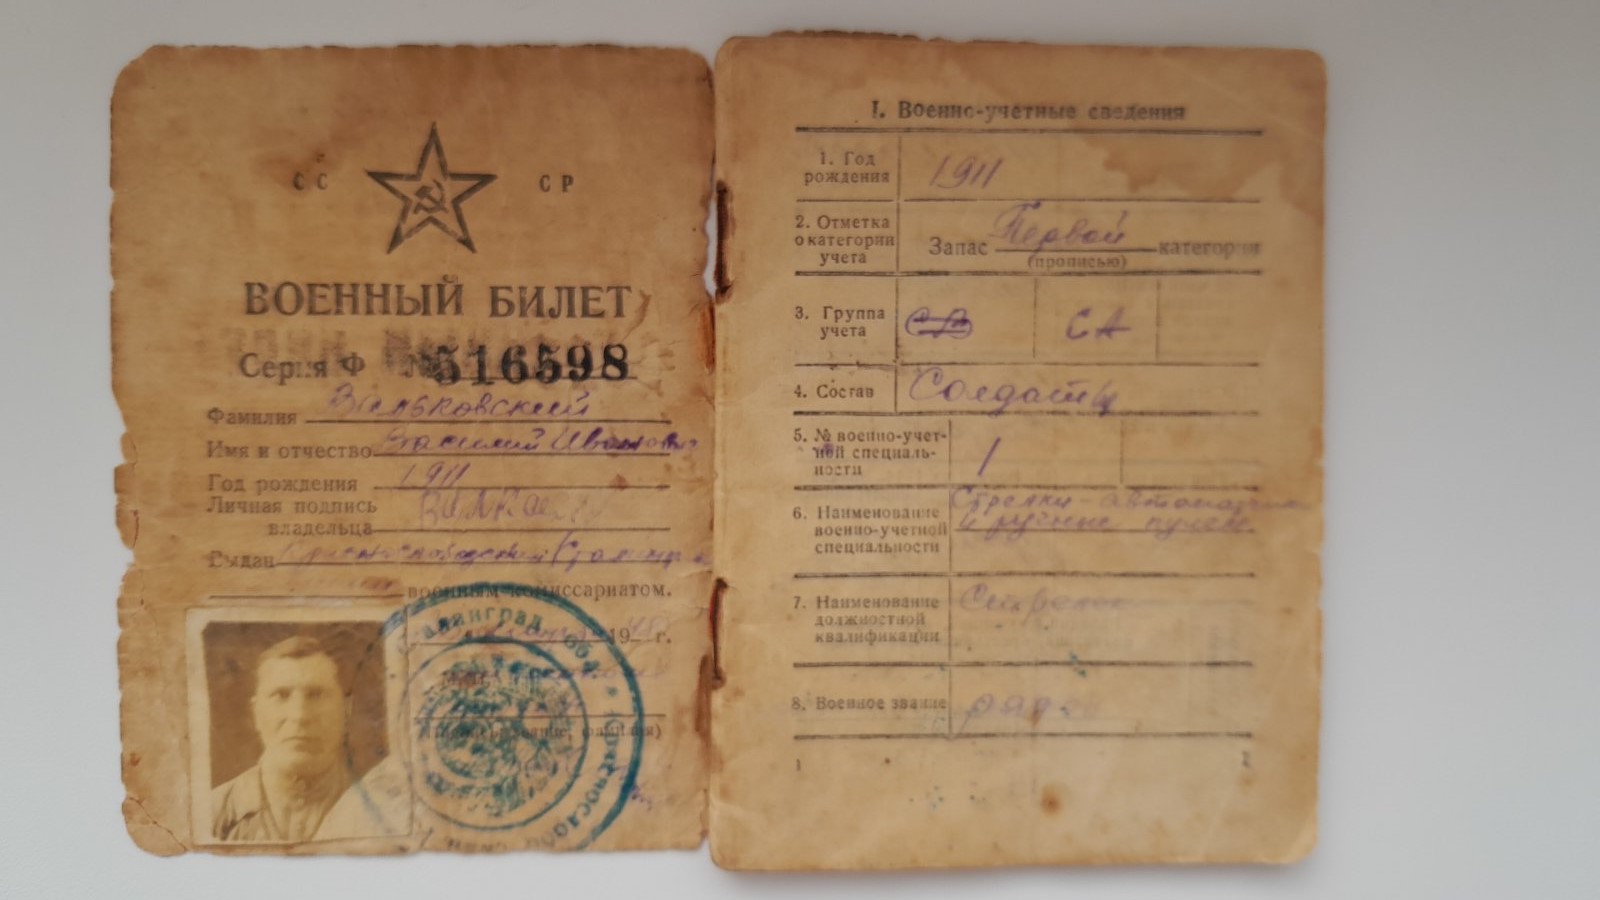 СС СР
ВОЕННЫЙ БИЛЕТ
Серия Ф № 516598
Фамилия Вальковский
Имя и отчество Василий Иванович
Год рождения 1911
Личная подпись
владельца
Выдан Краснослободский
военным комиссариатом.
19 г.
I. Военно-учетные сведения
1. Год
рождения 1911
2. Отметка
о категории
учета Запас Первой категории
(прописью)
3. Группа
учета СА
4. Состав Солдаты
5. № военно-учет-
ной специаль-
ности 1
6. Наименование
военно-учетной
специальности Стрелки-
и ручные пулем.
7. Наименование
должностной
квалификации Стрелок
8. Военное звание рядов
1
2